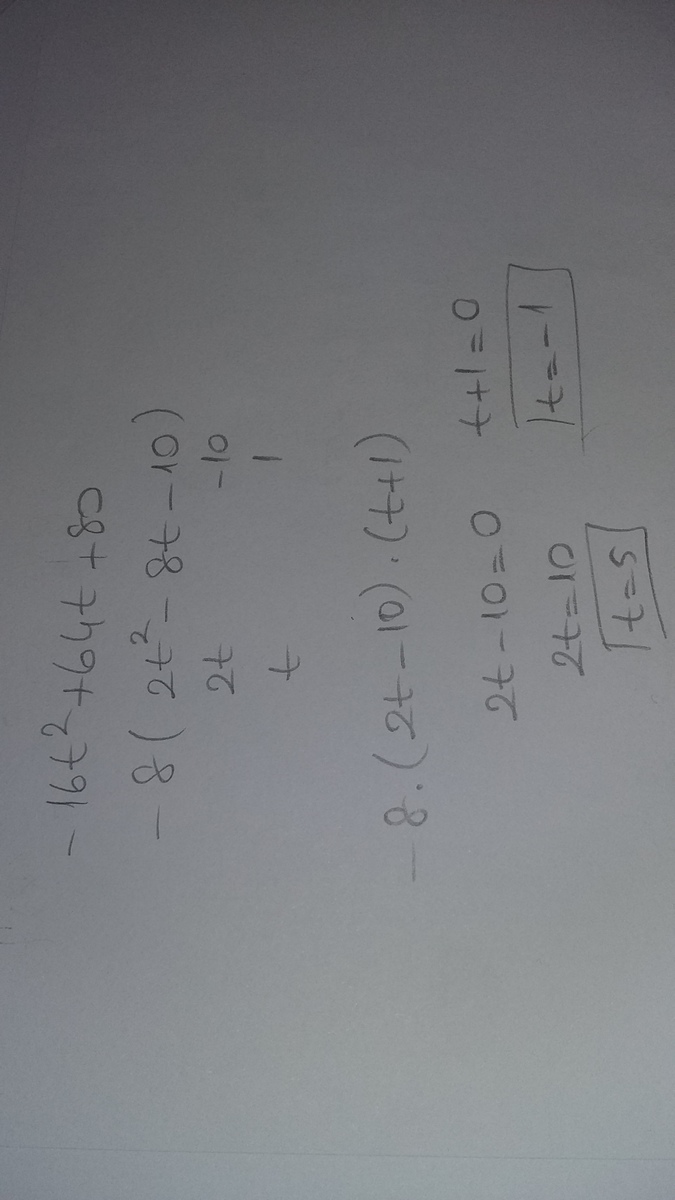 -16t²+64t+80
-8(2t²-8t-10)
2t -10
t 1
-8.(2t-10).(t+1)
2t-10=0 t+1=0
2t=10 t=-1
t=5